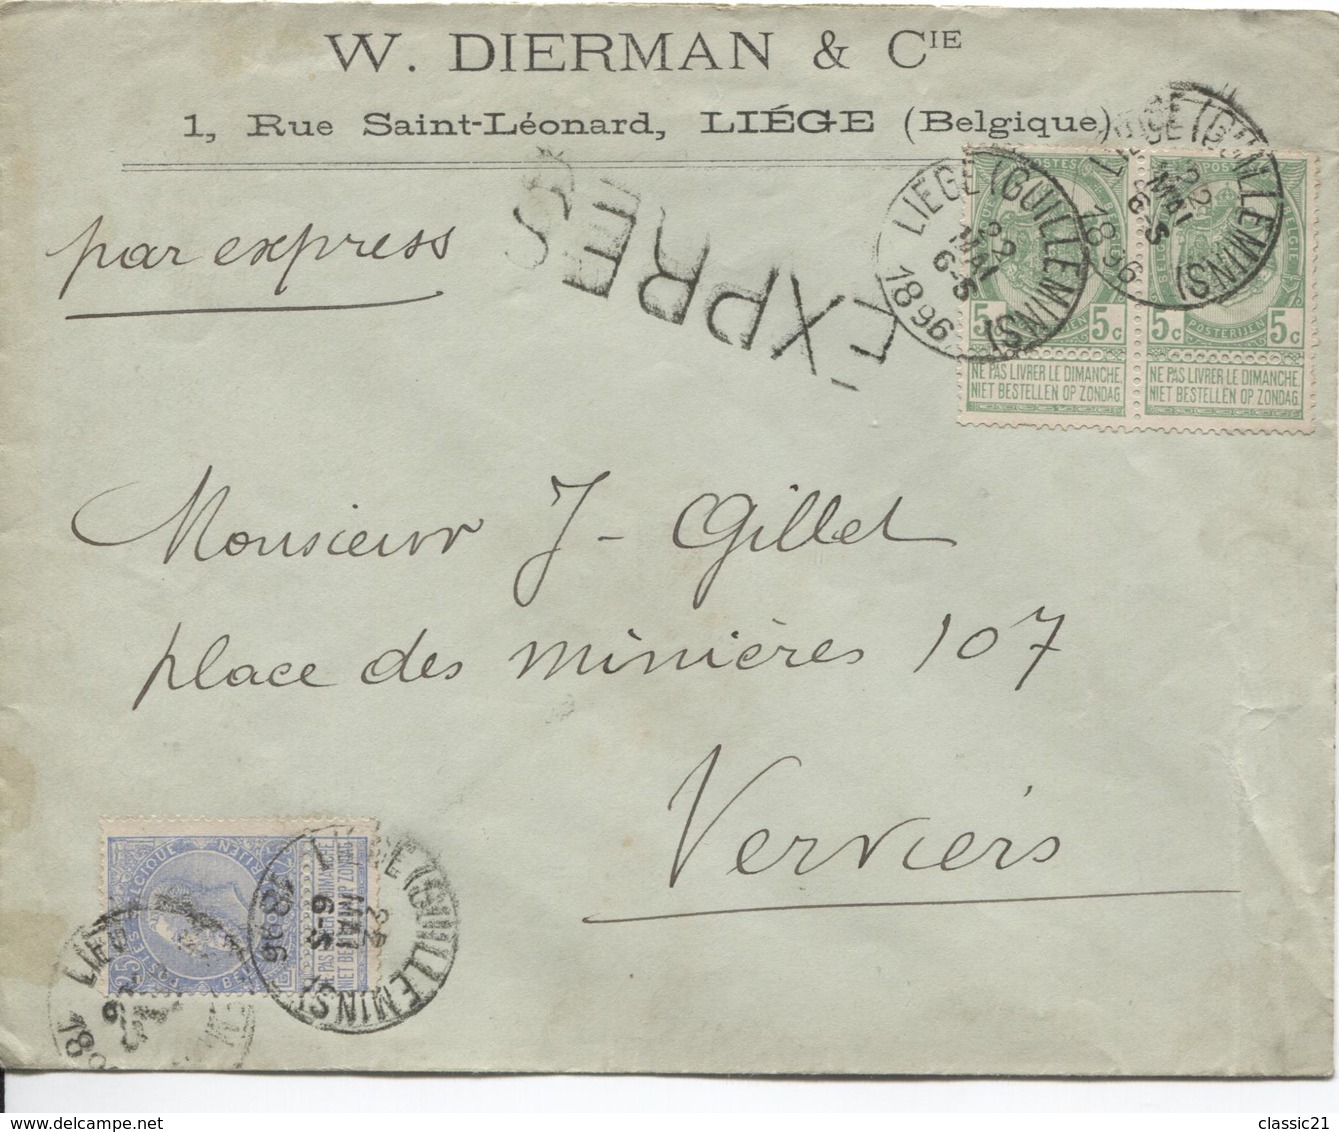 W. DIERMAN & CIE
1, Rue Saint-Léonard, LIÉGE (Belgique)
par express
EXPRES
LIEGE (GUILLEMINS)
22
MAI
6-S
1896
LIEGE (GUILLEMINS)
22
MAI
6-S
1896
POSTES
BELGIE
5c 5c
5c POSTERIJEN 5c
NE PAS LIVRER LE DIMANCHE
NIET BESTELLEN OP ZONDAG
NE PAS LIVRER LE DIMANCHE
NIET BESTELLEN OP ZONDAG
Monsieur J- Gillet
place des minières 107
Verviers
BELGIQUE
POSTES
25
LIEGE (GUILLEMINS)
MAI
6-S
1896
NIET BESTELLEN OP ZONDAG
LIEG
delcampe.net
classic21